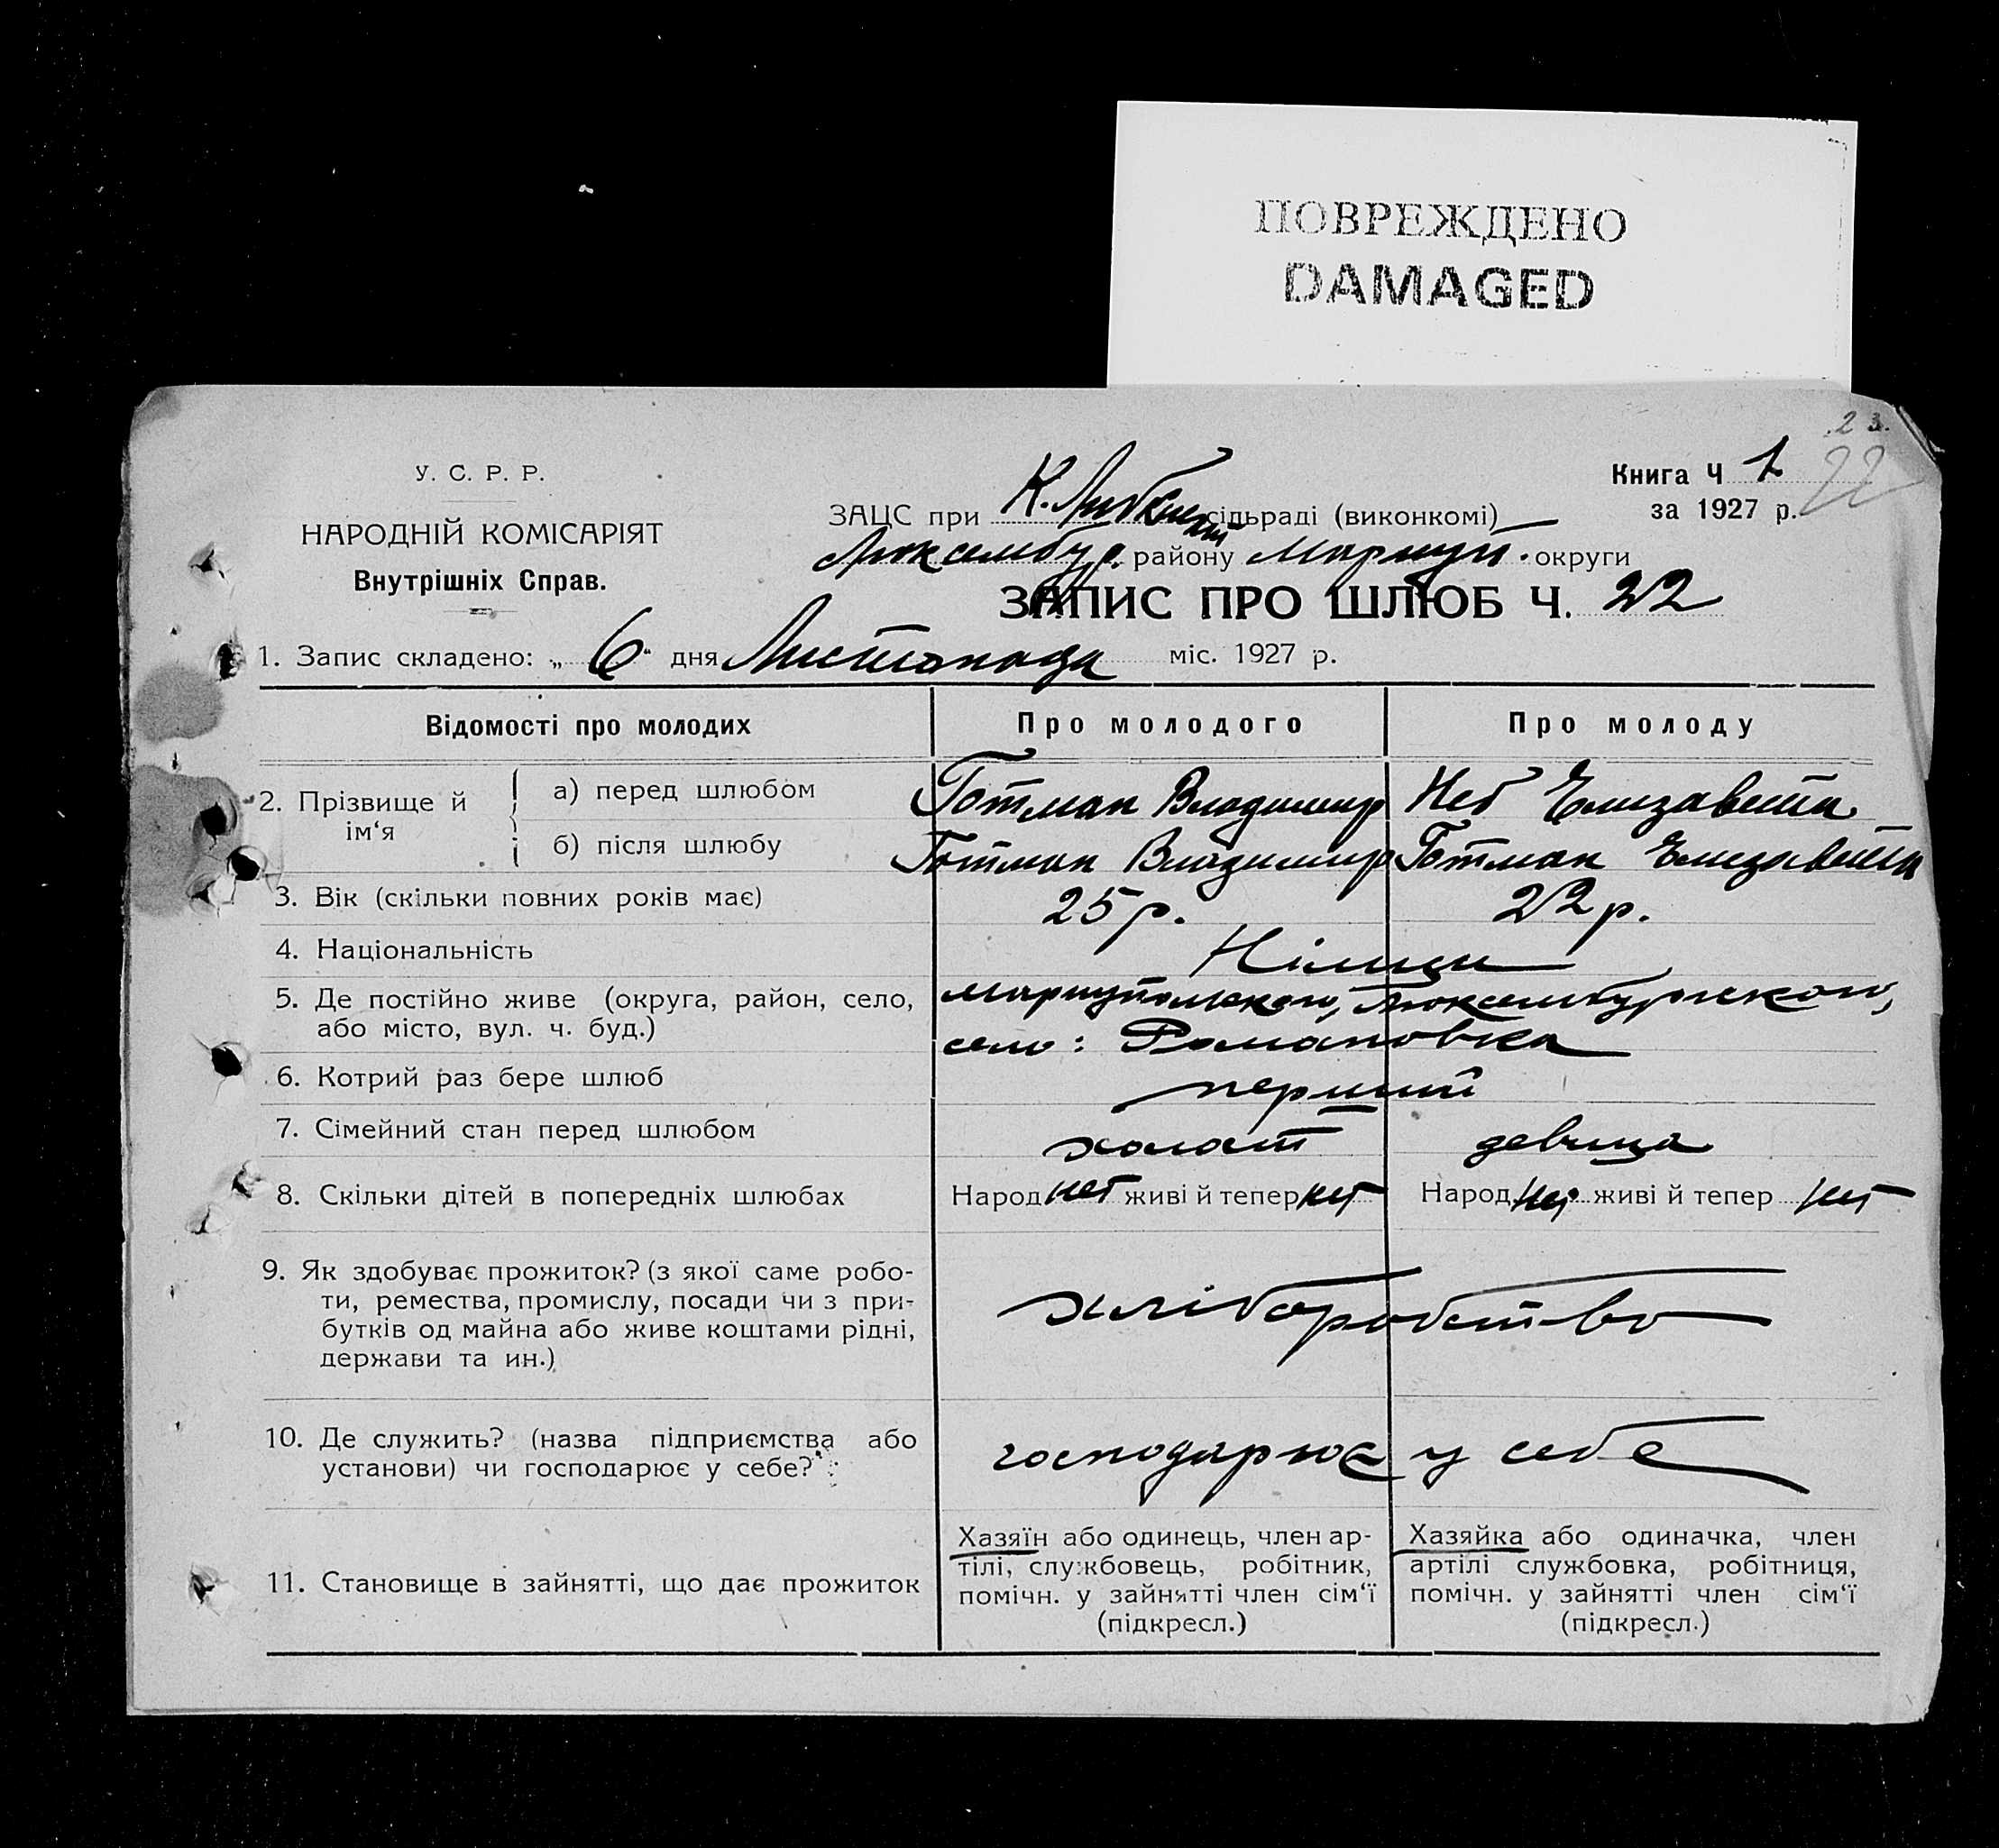 ПОВРЕЖДЕНО
DAMAGED
23.
22
У. С. Р. Р.
НАРОДНІЙ КОМІСАРІЯТ
Внутрішніх Справ.
Книга Ч 1
за 1927 р.
ЗАЦС при К. Либкнехт сільраді (виконкомі)
Люксембур. району Мариуп. округи
ЗАПИС ПРО ШЛЮБ Ч. 22
1. Запис складено: „ 6 “ дня Листопада міс. 1927 р.
Відомості про молодих Про молодого Про молоду
2. Прізвище й ім‘я
а) перед шлюбом Готман Владимир Неб Елизавета
б) після шлюбу Готман Владимир Готман Елизавета
3. Вік (скільки повних років має) 25 р. 22 р.
4. Національність Німци
5. Де постійно живе (округа, район, село, Мариупольского, Люксембургского,
або місто, вул. ч. буд.) село: Романовка
6. Котрий раз бере шлюб перший
7. Сімейний стан перед шлюбом холост девица
8. Скільки дітей в попередніх шлюбах Народ нет живі й тепер нет Народ нет живі й тепер нет
9. Як здобуває прожиток? (з якої саме робо-
ти, ремества, промислу, посади чи з при-
бутків од майна або живе коштами рідні,
держави та ин.)
хліборобство
10. Де служить? (назва підприємства або
установи) чи господарює у себе?
господарює у себе
11. Становище в зайнятті, що дає прожиток
Хазяїн або одинець, член ар-
тілі, службовець, робітник,
помічн. у зайнятті член сім‘ї
(підкресл.)
Хазяйка або одиначка, член
артілі службовка, робітниця,
помічн. у зайнятті член сім‘ї
(підкресл.)